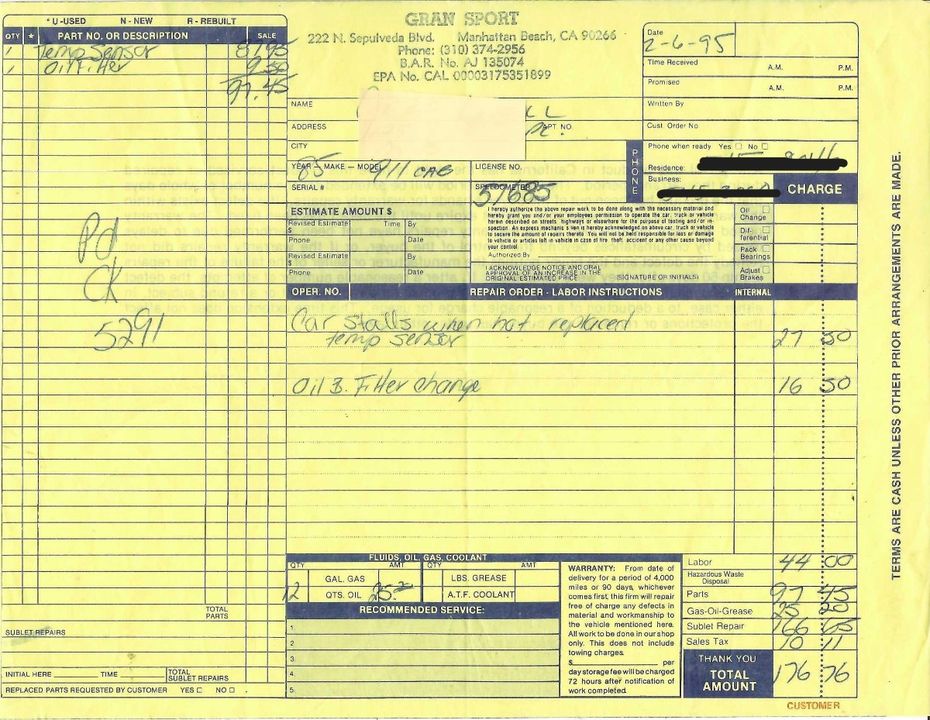 * U-USED N - NEW R - REBUILT
QTY * PART NO. OR DESCRIPTION SALE
1 Temp Sensor 87.95
1 Oil Filter 9.50
97.45
Pd
CK
5291
TOTAL PARTS
SUBLET REPAIRS
INITIAL HERE TIME TOTAL SUBLET REPAIRS
REPLACED PARTS REQUESTED BY CUSTOMER YES NO
GRAN SPORT
222 N. Sepulveda Blvd. Manhattan Beach, CA 90266
Phone: (310) 374-2956
B.A.R. No. AJ 135074
EPA No. CAL 00003175351899
Date
2-6-95
Time Received A.M. P.M.
Promised A.M. P.M.
Written By
Cust. Order No
NAME
ADDRESS APT NO.
CITY
Phone when ready Yes No
PHONE
Residence:
Business:
CHARGE
YEAR - MAKE - MODEL LICENSE NO.
85 911 CAB
SERIAL # SPEEDOMETER
51685
ESTIMATE AMOUNT $
Revised Estimate Time By
$
Phone Date
Revised Estimate By
$
Phone Date
I hereby authorize the above repair work to be done along with the necessary material and
hereby grant you and/or your employees permission to operate the car, truck or vehicle
herein described on streets, highways or elsewhere for the purpose of testing and/or in-
spection. An express mechanic's lien is hereby acknowledged on above car, truck or vehicle
to secure the amount of repairs thereto. You will not be held responsible for loss or damage
to vehicle or articles left in vehicle in case of fire, theft, accident or any other cause beyond
your control.
Authorized By
I ACKNOWLEDGE NOTICE AND ORAL
APPROVAL OF AN INCREASE IN THE
ORIGINAL ESTIMATED PRICE (SIGNATURE OR INITIALS)
Oil Change
Dif-ferential
Pack Bearings
Adjust Brakes
OPER. NO. REPAIR ORDER - LABOR INSTRUCTIONS INTERNAL
Car stalls when hot replaced
temp sensor 27 50
Oil & Filter change 16 50
FLUIDS, OIL, GAS, COOLANT
QTY AMT QTY AMT
GAL. GAS LBS. GREASE
12 QTS. OIL 25.20 A.T.F. COOLANT
RECOMMENDED SERVICE:
1.
2.
3.
4.
5.
WARRANTY: From date of
delivery for a period of 4,000
miles or 90 days, whichever
comes first, this firm will repair
free of charge any defects in
material and workmanship to
the vehicle mentioned here.
All work to be done in our shop
only. This does not include
towing charges.
$ per
day storage fee will be charged
72 hours after notification of
work completed.
Labor 44 00
Hazardous Waste Disposal
Parts 97 45
Gas-Oil-Grease 25 20
Sublet Repair 166 65
Sales Tax 10 11
THANK YOU
TOTAL AMOUNT 176 76
CUSTOMER
TERMS ARE CASH UNLESS OTHER PRIOR ARRANGEMENTS ARE MADE.